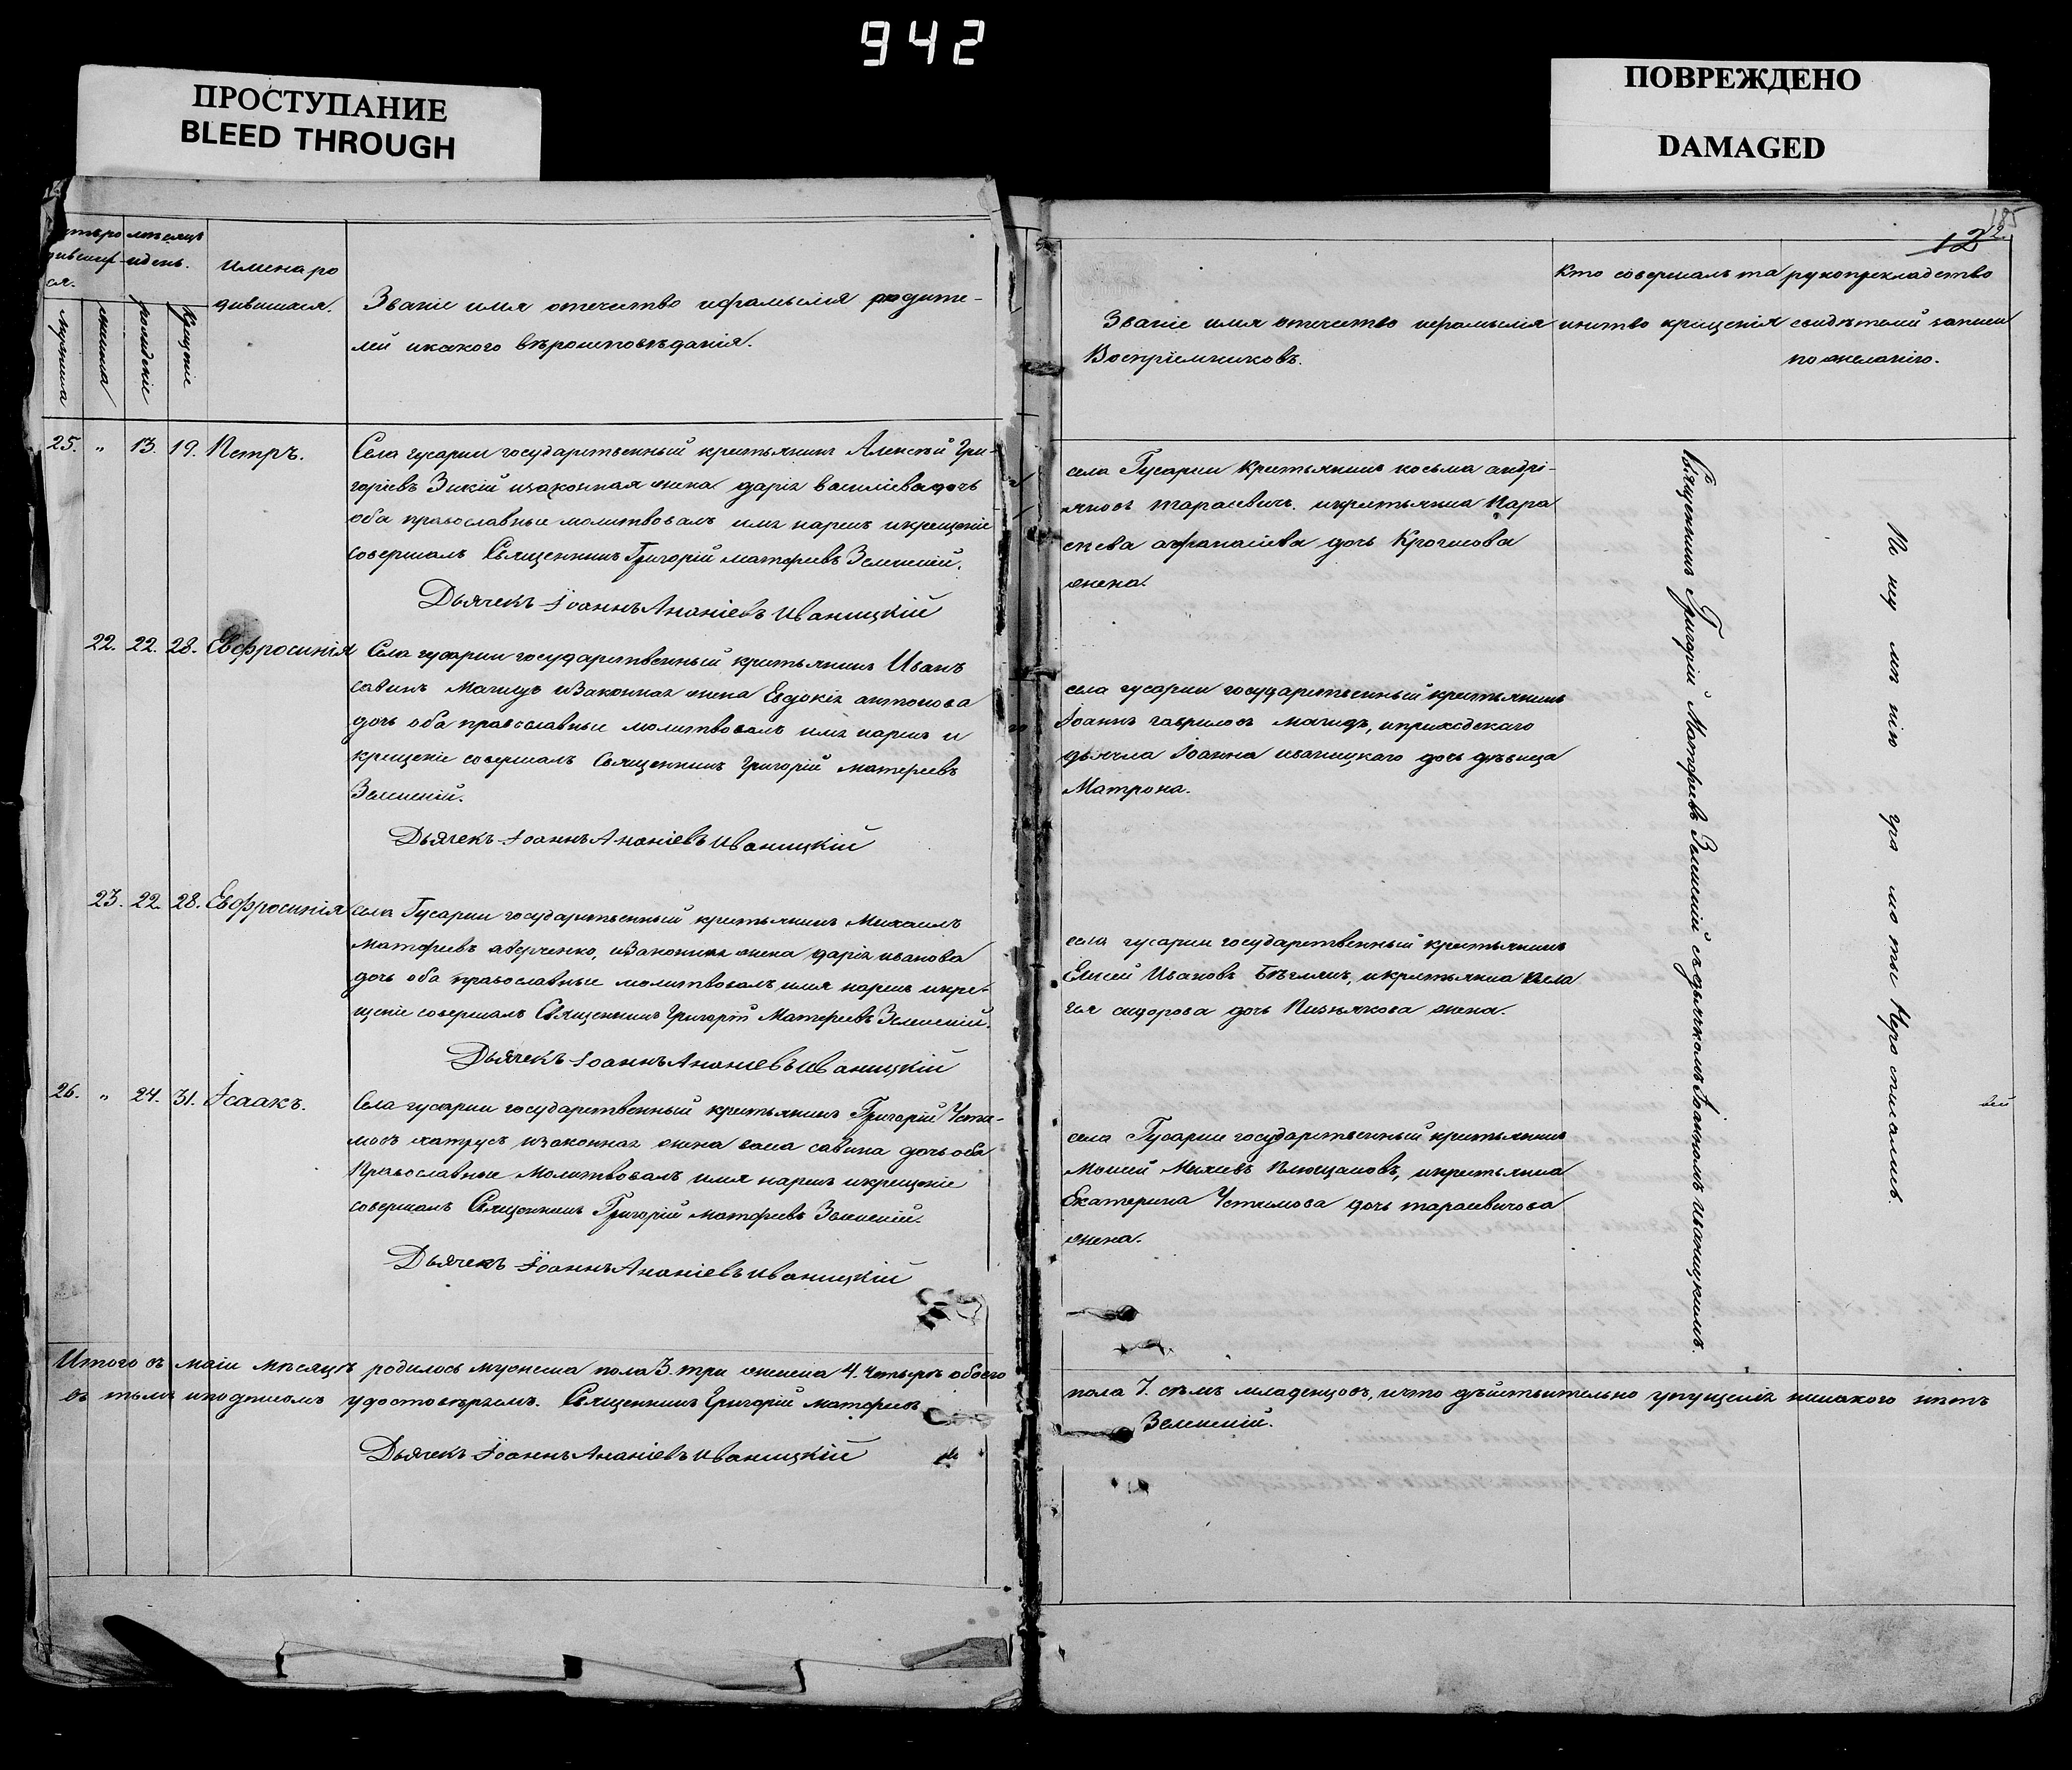 942
ПРОСТУПАНИЕ
BLEED THROUGH
ПОВРЕЖДЕНО
DAMAGED
185
12
имена ро
дившихся.
Званіе имя отечество ифамилія родите-
лей икакого вѣроисповѣданія.
мужеска
женска
рожденіе
крещеніе
25. " 13. 19. Петръ.
Села гусарки государственный крестьянинъ Алексѣй Гри-
горіевъ Зикій изаконная жена дарія василіева дочь
оба православные молитвовалъ имя нарекъ икрещеніе
совершалъ Священникъ Григорій матфеевъ Зеленскій.
Дьячекъ Іоаннъ Ананіевъ Иваницкій
22. 22. 28. Евфросинія
Села гусарки государственный крестьянинъ Иванъ
савинъ Магидъ изаконная жена Евдокія антонова
дочь оба православные молитвовалъ имя нарекъ и
крещеніе совершалъ Священникъ Григорій матфеевъ
Зеленскій.
Дьячекъ Іоаннъ Ананіевъ Иваницкій
23. 22. 28. Евфросинія
села Гусарки государственный крестьянинъ Михаилъ
матфеевъ аверченко, изаконная жена дарія иванова
дочь оба православные молитвовалъ имя нарекъ икре-
щеніе совершалъ Священникъ Григорій Матфеевъ Зеленскій.
Дьячекъ Іоаннъ Ананіевъ Иваницкій
26. " 24. 31. Ісаакъ.
Села гусарки государственный крестьянинъ Григорій Усти-
мовъ изаконная жена савина дочь оба
Православные Молитвовалъ имя нарекъ икрещеніе
совершалъ Священникъ Григорій матфеевъ Зеленскій.
Дьячекъ Іоаннъ Ананіевъ Иваницкій
Итого въ маіи мѣсяцѣ родилось мужеска пола 3. три женска 4. четыре обоего
въ томъ иподписомъ удостовѣряемъ. Священникъ Григорій матфеевъ
Дьячекъ Іоаннъ Ананіевъ Иваницкій
Званіе имя отечество ифамилія
Воспріемниковъ.
Кто совершалъ та
инство крещенія
рукоприкладство
свидѣтелей записи
по желанію.
села Гусарки крестьянинъ косьма андрі-
яновъ тарасевичъ. икрестьянка Пара
скева афанасіева дочь
жена.
села гусарки государственный крестьянинъ
Іоаннъ гавриловъ магидъ, иприходскаго
дьячка Іоанна иваницкаго дочь дѣвица
Матрона.
села гусарки государственный крестьянинъ
Елисей Ивановъ икрестьянка Пела
гія сидорова дочь Пизнякова жена.
села Гусарки государственный крестьянинъ
Моисей икрестьянка
Екатерина Устимова дочь тарасевичова
жена.
Священникъ Григорій Матфеевъ Зеленскій съдьячкомъ Іоанномъ Иваницкимъ.
По неу мѣ нію гра мо ты Не росписались.
пола 7. сѣмъ младенцовъ, ичто дѣйствительно упущенія никакого нѣтъ
Зеленскій.